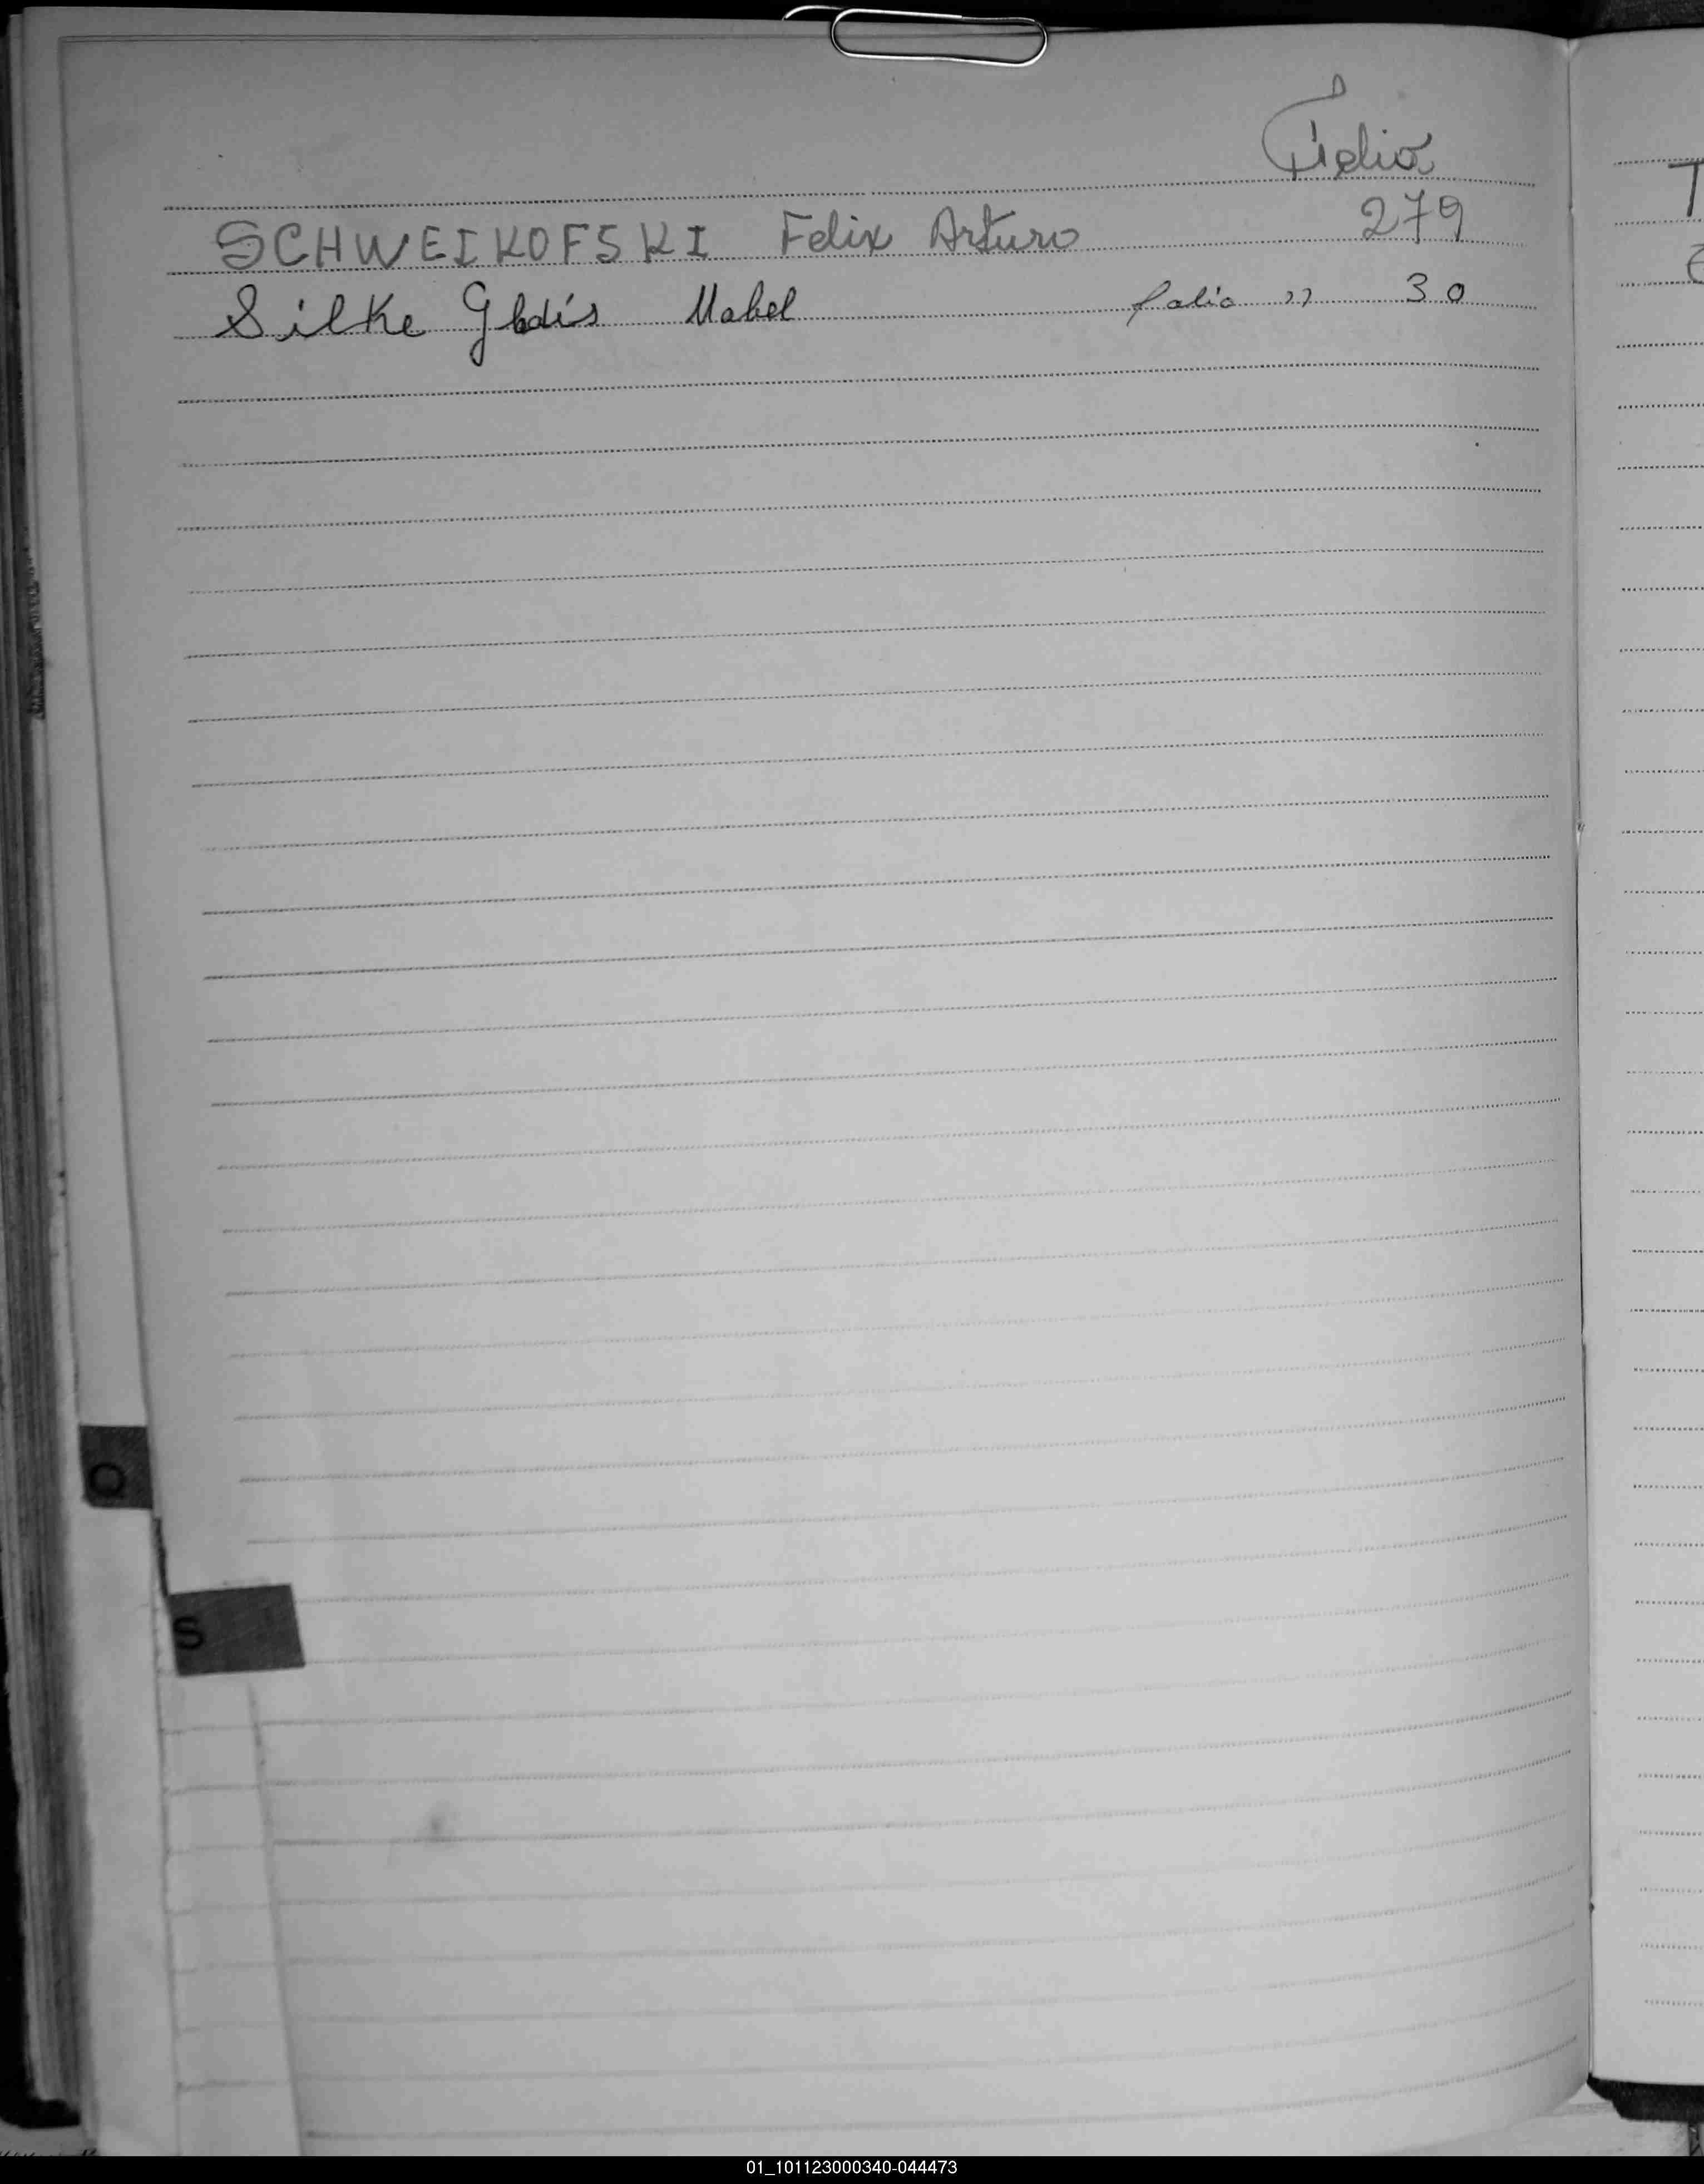 Folio
SCHWEIKOFSKI Felix Arturo 279
Silke Gladís Mabel folio " 30
O
S
01_101123000340-044473